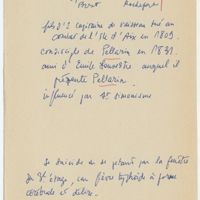 Brest Rochefort
fils d'1 capitaine de vaisseau tué au
combat de l'Ile d'Aix en 1809.
condisciple de Pellarin en 1821.
ami d'Emile Souvestre auquel il
présente Pellarin.
influencé par St simonisme
Se suicide en se jetant par la fenêtre
du 3e étage, en fièvre typhoïde à forme
cérébrale et délire.